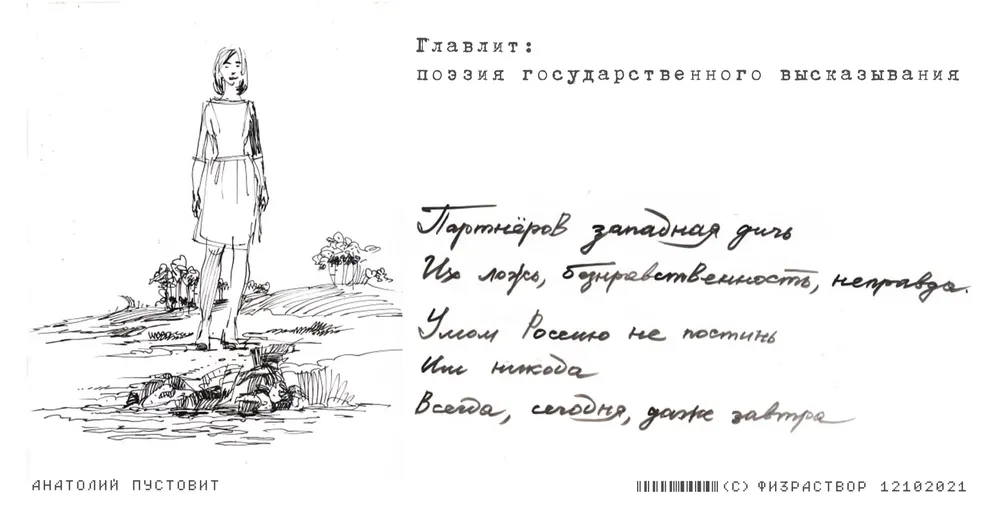 Главлит:
поэзия государственного высказывания
Партнёров западная дичь
Их ложь, безнравственность, неправда.
Умом Россию не постичь
Им никода
Всегда, сегодня, даже завтра
АНАТОЛИЙ ПУСТОВИТ
(С) ФИЗРАСТВОР 12102021